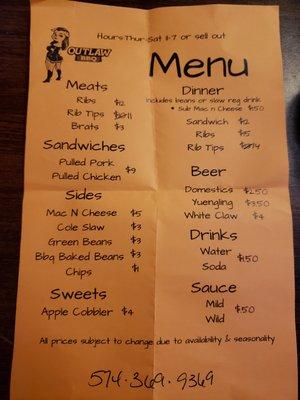 Hours:Thur-Sat 11-7 or sell out
OUTLAW
BBQ
Menu
Meats
Ribs $12
Rib Tips
Brats $3
Sandwiches
Pulled Pork
Pulled Chicken $9
Sides
Mac N Cheese $5
Cole Slaw $3
Green Beans $3
Bbq Baked Beans $3
Chips $1
Sweets
Apple Cobbler $4
Dinner
Includes beans or slaw reg drink
* Sub Mac n Cheese $1.50
Sandwich $12
Ribs $15
Rib Tips
Beer
Domestics $2.50
Yuengling $3.50
White Claw $4
Drinks
Water
Soda $1.50
Sauce
Mild
Wild $.50
All prices subject to change due to availability & seasonality
574-369-9369